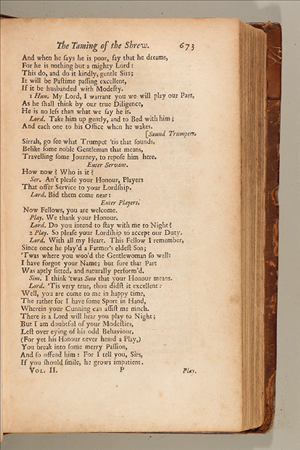 The Taming of the Shrew. 673
And when he says he is poor, say that he dreams,
For he is nothing but a mighty Lord:
This do, and do it kindly, gentle Sirs;
It will be Pastime passing excellent,
If it be husbanded with Modesty.
1 Hun. My Lord, I warrant you we will play our Part,
As he shall think by our true Diligence,
He is no less than what we say he is.
Lord. Take him up gently, and to Bed with him;
And each one to his Office when he wakes.
[Sound Trumpets.
Sirrah, go see what Trumpet 'tis that sounds,
Belike some noble Gentleman that means,
Travelling some Journey, to repose him here.
Enter Servant.
How now? Who is it?
Ser. An't please your Honour, Players
That offer Service to your Lordship.
Lord. Bid them come near:
Enter Players.
Now Fellows, you are welcome.
Play. We thank your Honour.
Lord. Do you intend to stay with me to Night?
2 Play. So please your Lordship to accept our Duty.
Lord. With all my Heart. This Fellow I remember,
Since once he play'd a Farmer's eldest Son;
'Twas where you woo'd the Gentlewoman so well:
I have forgot your Name; but sure that Part
Was aptly fitted, and naturally perform'd.
Sim. I think 'twas Soto that your Honour means.
Lord. 'Tis very true, thou didst it excellent:
Well, you are come to me in happy time,
The rather for I have some Sport in Hand,
Wherein your Cunning can assist me much.
There is a Lord will hear you play to Night;
But I am doubtful of your Modesties,
Lest over eying of his odd Behaviour,
(For yet his Honour never heard a Play,)
You break into some merry Passion,
And so offend him: For I tell you, Sirs,
If you should smile, he grows impatient.
VOL. II. P Play.